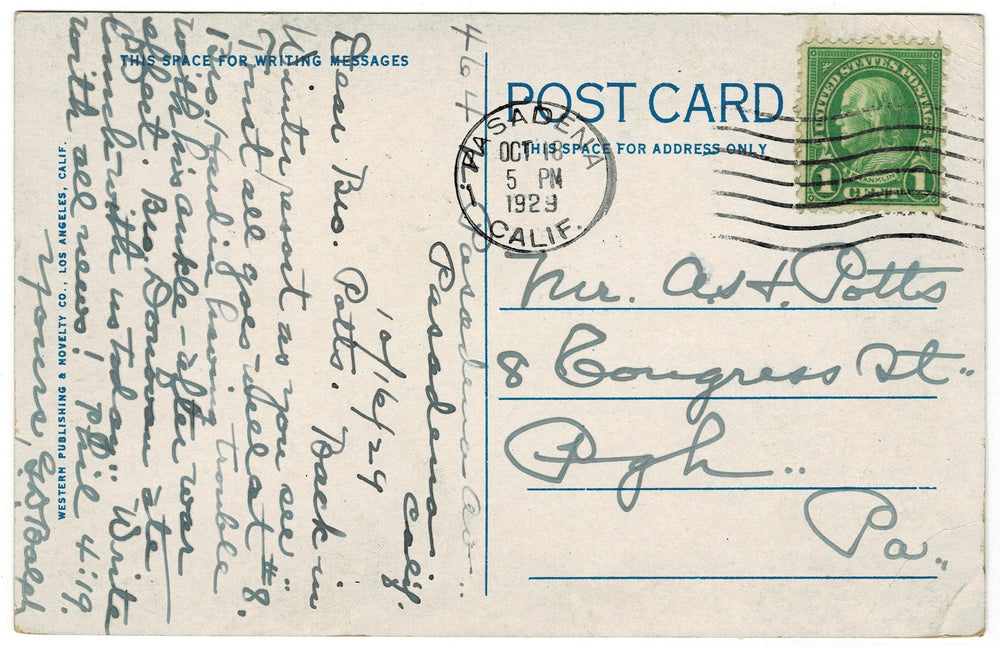 THIS SPACE FOR WRITING MESSAGES
464 Pasadena Av..
Pasadena
Calif.
10/16/29
Dear Bro. Potts. Back in
Winter resort as you see..
Trust all goes well at #8.
Bro, Hardin having trouble
with his ankle - after war
effect. Bro, Donovan ate
lunch with us today.. Write
with all news! Phil 4:19.
Yours,
WESTERN PUBLISHING & NOVELTY CO., LOS ANGELES, CALIF.
POST CARD
THIS SPACE FOR ADDRESS ONLY
PASADENA
OCT 18
5 PM
1929
CALIF.
UNITED STATES POSTAGE
FRANKLIN
1 CENT 1
Mr. A.H. Potts
8 Congress St..
Pgh..
Pa..